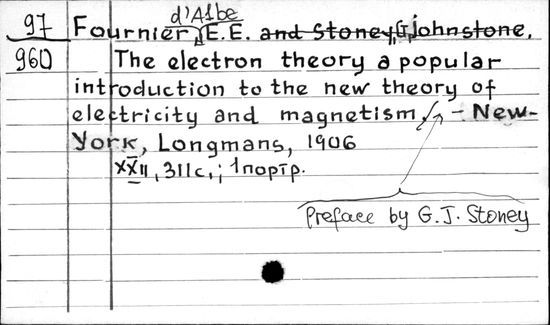 97 Fournier d'Albe, E.E. and Stoney, G. Johnstone.
960 The electron theory a popular
introduction to the new theory of
electricity and magnetism, - New-
York, Longmans, 1906
XXII, 311c.; 1 портр.
Preface by G. J. Stoney